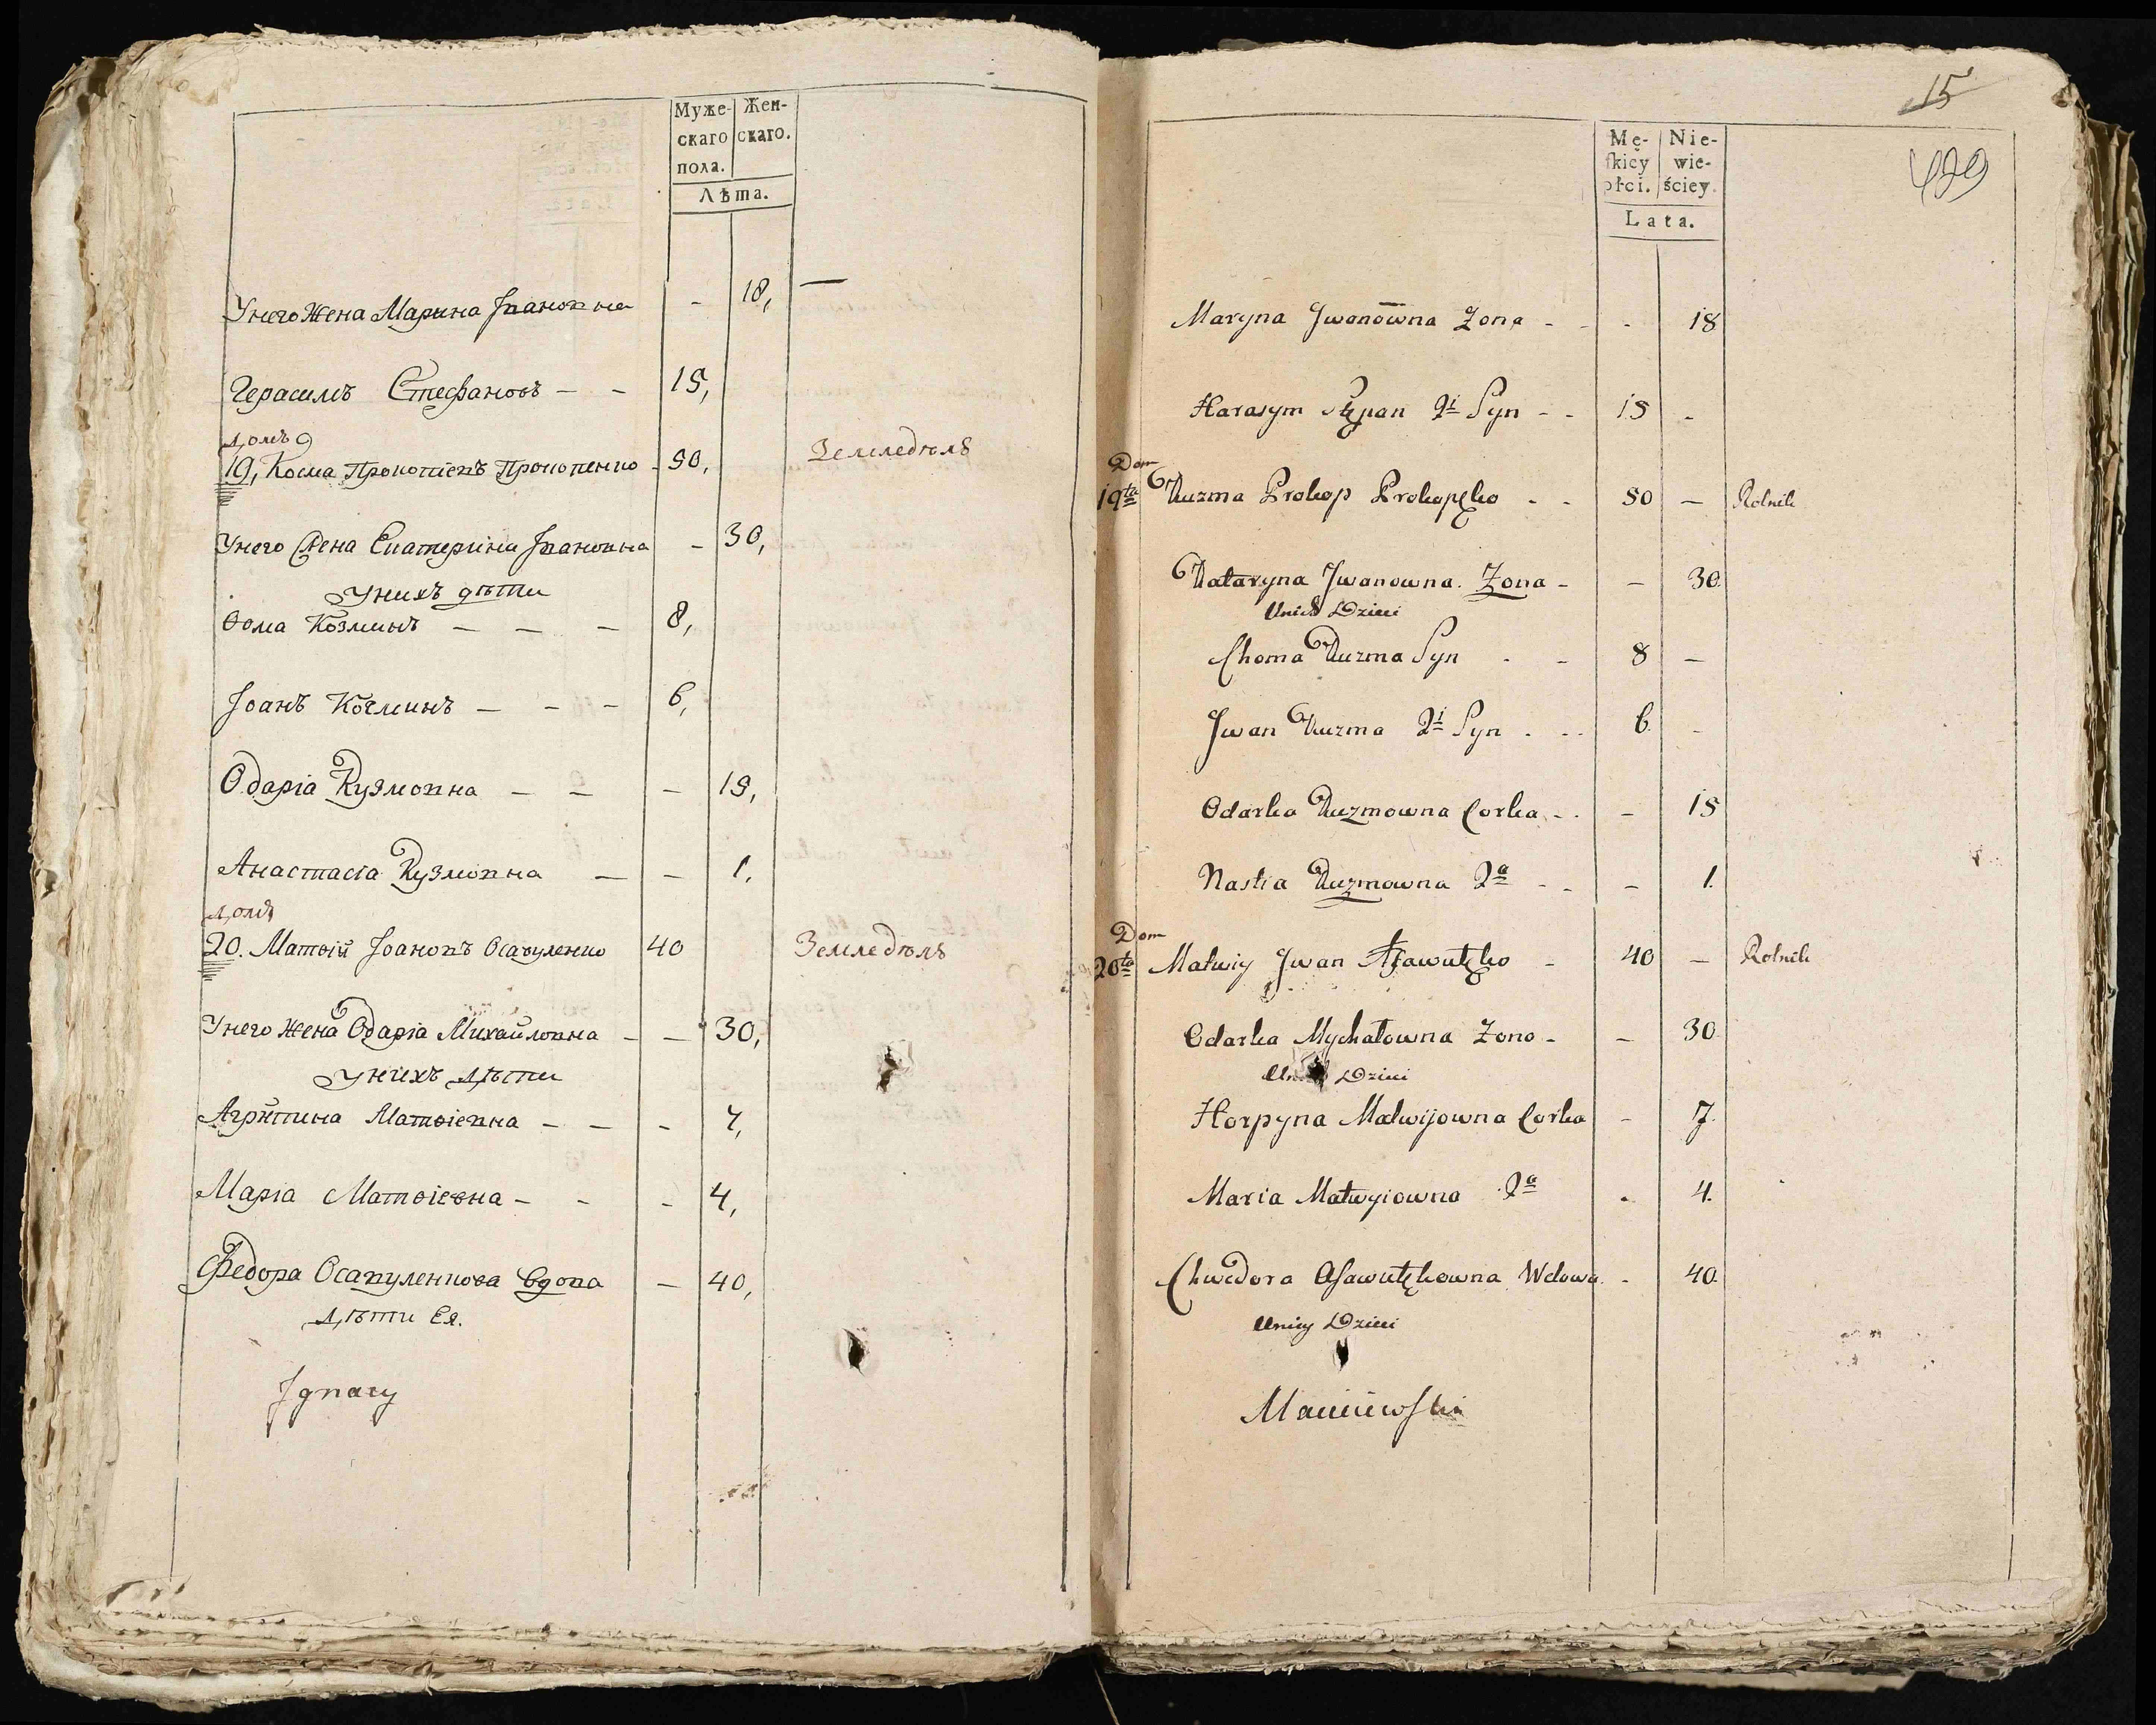 Муже- Жен-
скаго скаго.
пола.
Лѣта.
У него Жена Марина Ивановна - 18, —
Герасимъ Стефановъ - - 15,
домъ
19, Косма Прокопіевъ Прокопенко - 50, Земледѣлъ
У него Жена Екатерина Ивановна - 30,
У нихъ дѣти
Ѳома Козминъ — — — 8,
Іоанъ Козминъ — - - 6,
Одарія Кузмовна — — — 15,
Анастасія Кузмовна — — 1,
домъ
20. Матѳій Іоановъ Осавуленко 40 Земледѣлъ
У него Жена Одарія Михайловна - — 30,
У нихъ дѣти
Агрипина Матѳіевна — — - 7,
Марія Матѳіевна - - - 4,
Федора Осавуленкова Вдова — 40,
дѣти Ея.
Jgnacy
15
499
Mę- Nie-
ſkiey wie-
płci. ściey.
Lata.
Maryna Jwanowna Zona - - - 18
Harasym Stepan 2i Syn - - 15 -
Dom
19ta Kuzma Prokop Prokopęko - - 50 — Rolnik
Kataryna Jwanowna Zona - — 30.
Unich Dzieci
Choma Kuzma Syn - - 8 —
Jwan Kuzma 2i Syn - - 6. -
Odarka Kuzmowna Corka - - — 15
Nastia Kuzmowna 2a - - - 1.
Dom
20ta Matwiy Jwan Aſawulęko - 40 — Rolnik
Odarka Mychałowna Zona - — 30.
Unich Dzieci
Horpyna Matwijowna Corka - 7.
Maria Matwyiowna 2a - 4.
Chwedora Aſawulękowna Wdowa - 40.
Uniey Dzieci